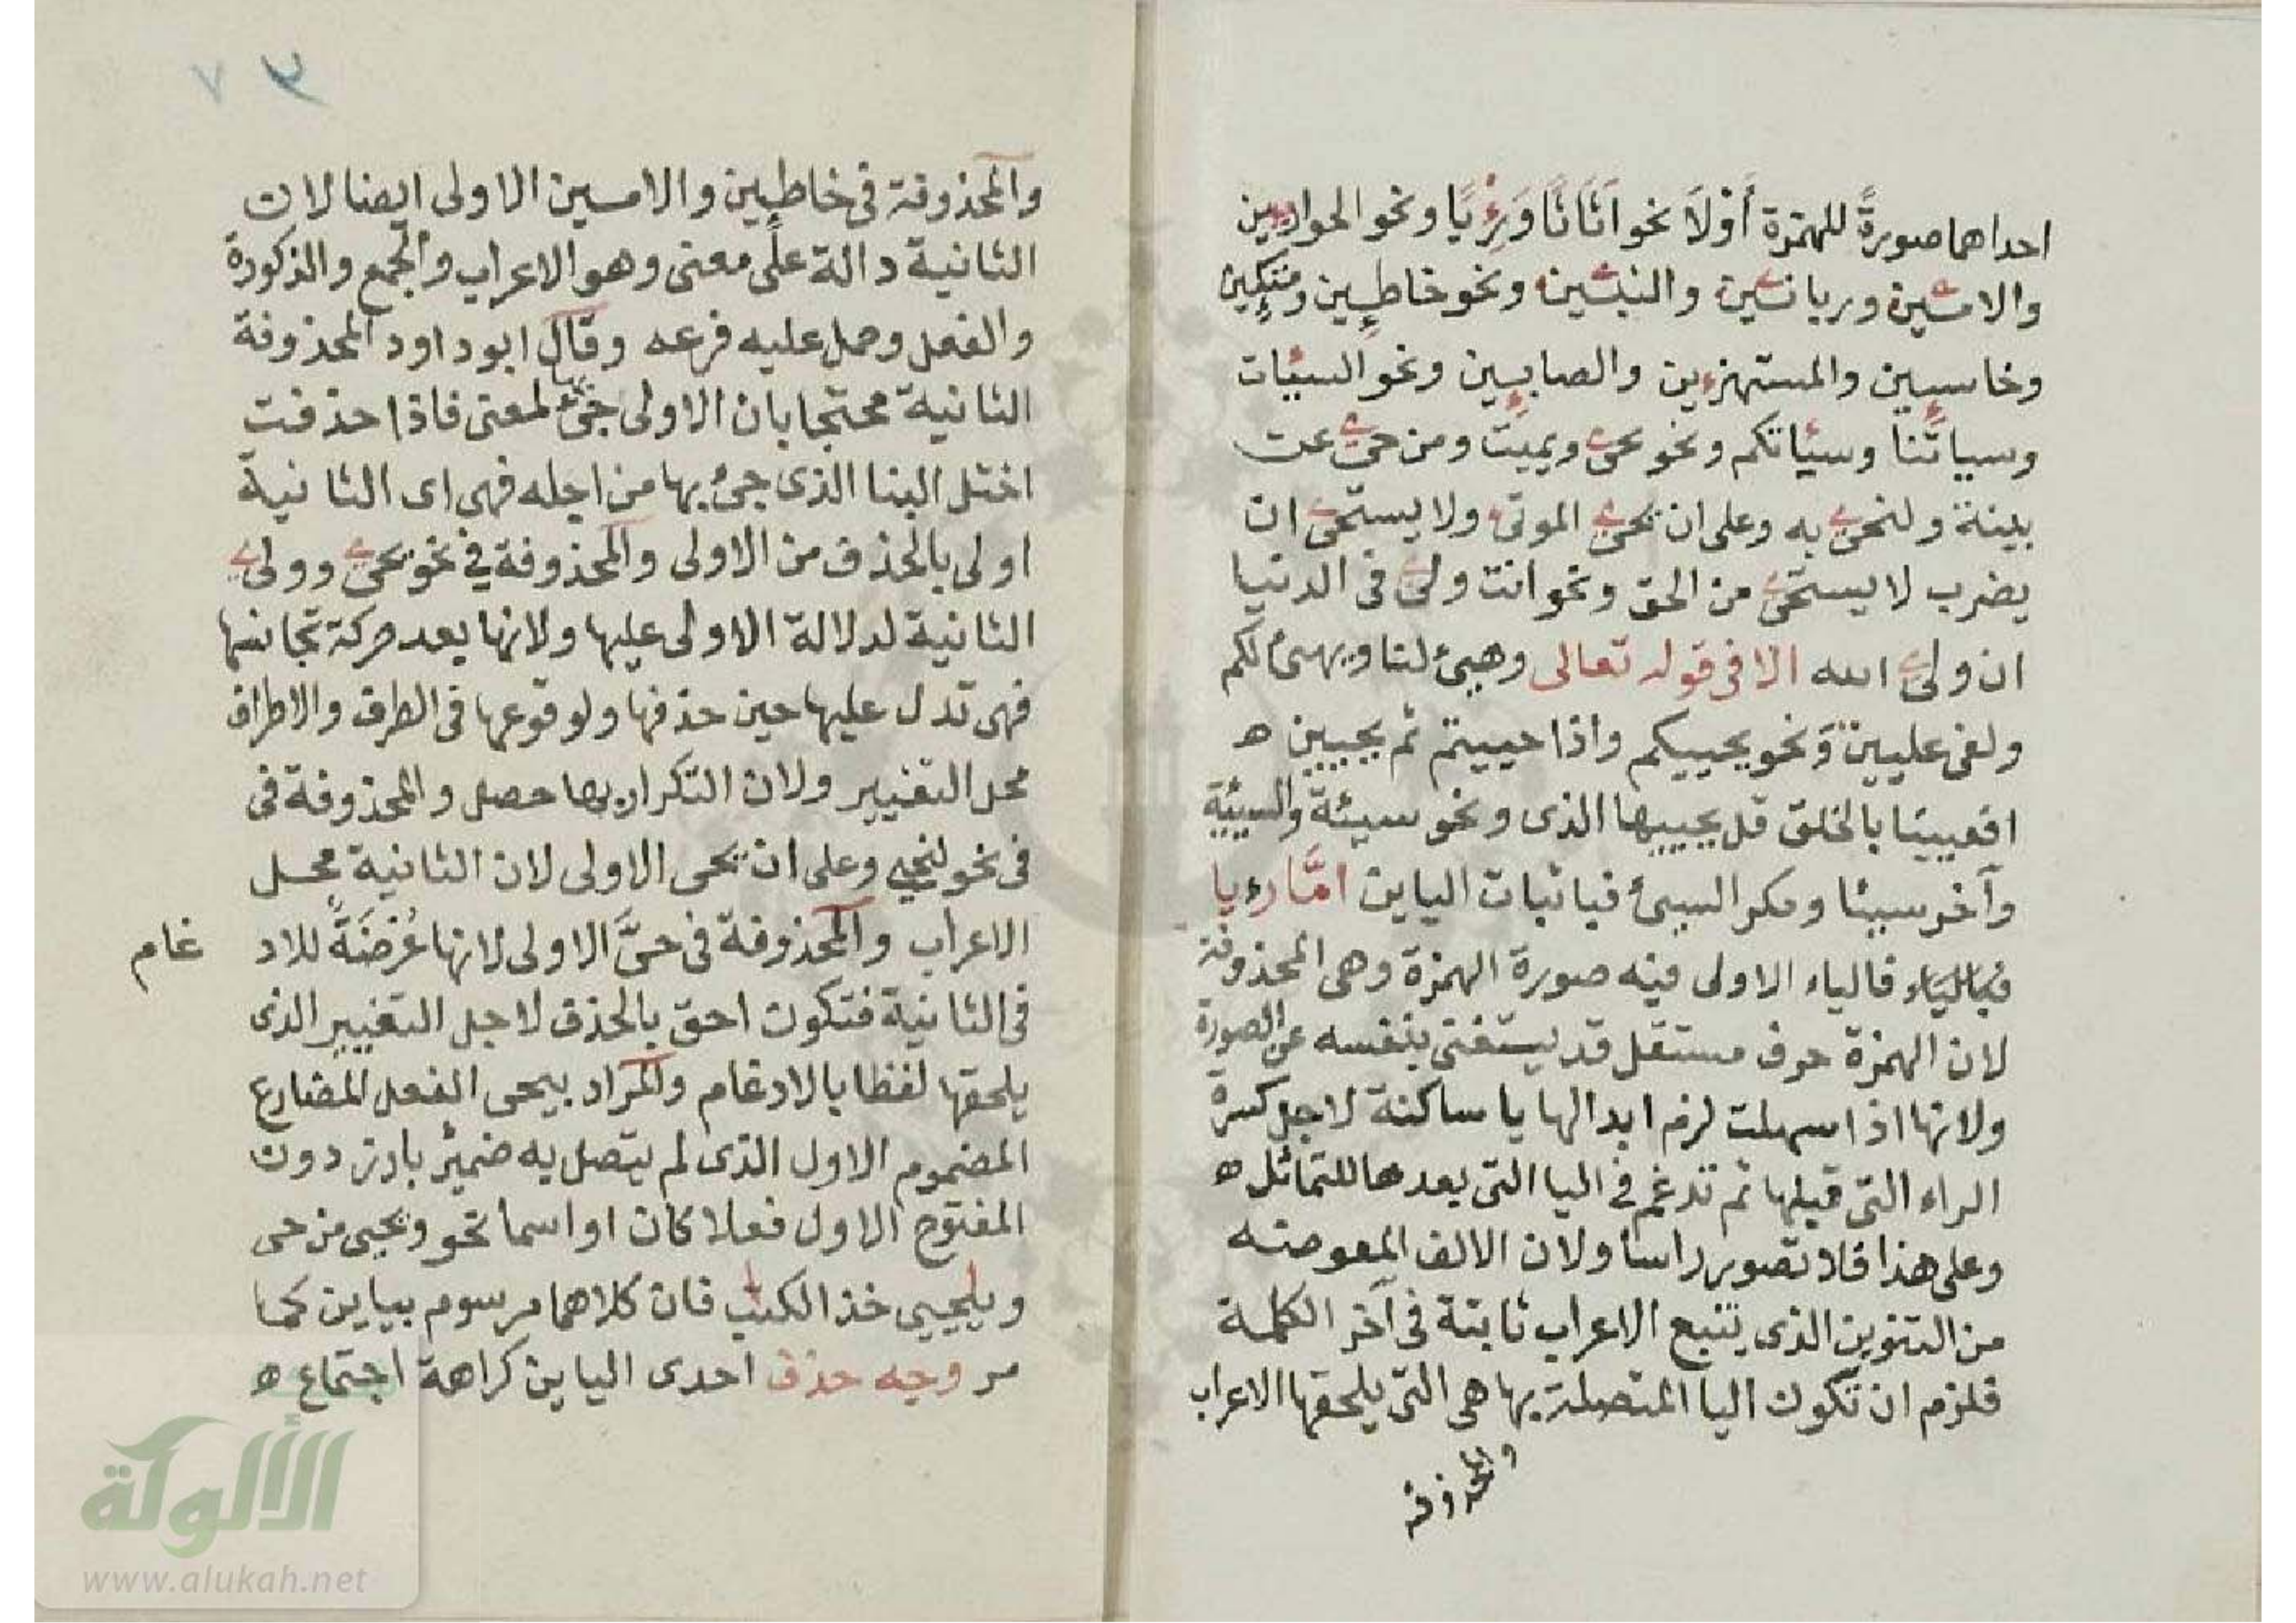 احداهما صورةً للهمزة أَوْلَا نحو اَثَاثًا وَرِءْيًا ونحو الحواريين
والامين وربانين والنبين ونحو خاطين ومتكين
وخاسين والمستهزين والصابين ونحو السيئات
وسياتنا وسيئاتكم ونحو يحى ويميت ومن حى عن
بينة ولنحى به وعلى ان يحى الموتى ولا يستحى ان
يضرب لا يستحى من الحق ونحو انت ولى فى الدنيا
ان ولى الله الا فى قوله تعالى وهيئ لنا ويهيئ لكم
ولفى عليين ونحو يحييكم واذا حييتم ثم يحيين ه
افعيينا بالخلق قل يحييها الذى ونحو سيئة والسيئة
وآخر سيئا ومكر السيئ فباثبات الياين امَّا رءيا
فبالياء فالياء الاولى فيه صورة الهمزة وهى المحذوفة
لان الهمزة حرف مستقل قد يستغنى بنفسه عن الصورة
ولانها اذا سهلت لزم ابدالها يا ساكنة لاجل كسرة
الراء التى قبلها ثم تدغم فى اليا التى بعدها للتماثل ه
وعلى هذا فلا تصوير راسا ولان الالف المعوضه
من التنوين الذى يتبع الاعراب ثابتة فى آخر الكلمة
فلزم ان تكون اليا المتصلة بها هى التى يلحقها الاعراب
والمحذوفة
٧
والمحذوفة فى خاطين والامين الاولى ايضا لان
الثانية دالة على معنى وهو الاعراب والجمع والذكورة
والفعل وحمل عليه فرعه وقال ابو داود المحذوفة
الثانية محتجا بان الاولى جئ بها لمعنى فاذا حذفت
اختل البنا الذى جئ بها من اجله فهى اى الثانية
اولى بالحذف من الاولى والمحذوفة فى نحو يحى وولى
الثانية لدلالة الاولى عليها ولانها بعد حركة تجانسها
فهى تدل عليها حين حذفها ولوقوعها فى الطرف والاطراف
محل التغيير ولان التكرار بها حصل والمحذوفة فى
فى نحو لنحيى وعلى ان يحى الاولى لان الثانية محل
الاعراب والمحذوفة فى حىَّ الاولى لانها عُرْضَةً للاد غام
فى الثانية فتكون احق بالحذف لاجل التغيير الذى
يلحقها لفظا بالادغام والمراد بيحى الفعل المضارع
المضموم الاول الذى لم يتصل به ضمير بارز دون
المفتوح الاول فعلا كان او اسما نحو ويحيى من حى
ويايحيى خذ الكتب فان كلاهما مرسوم بياين كما
مر وجه حذف احدى الياين كراهة اجتماع ه
الألوكة
www.alukah.net